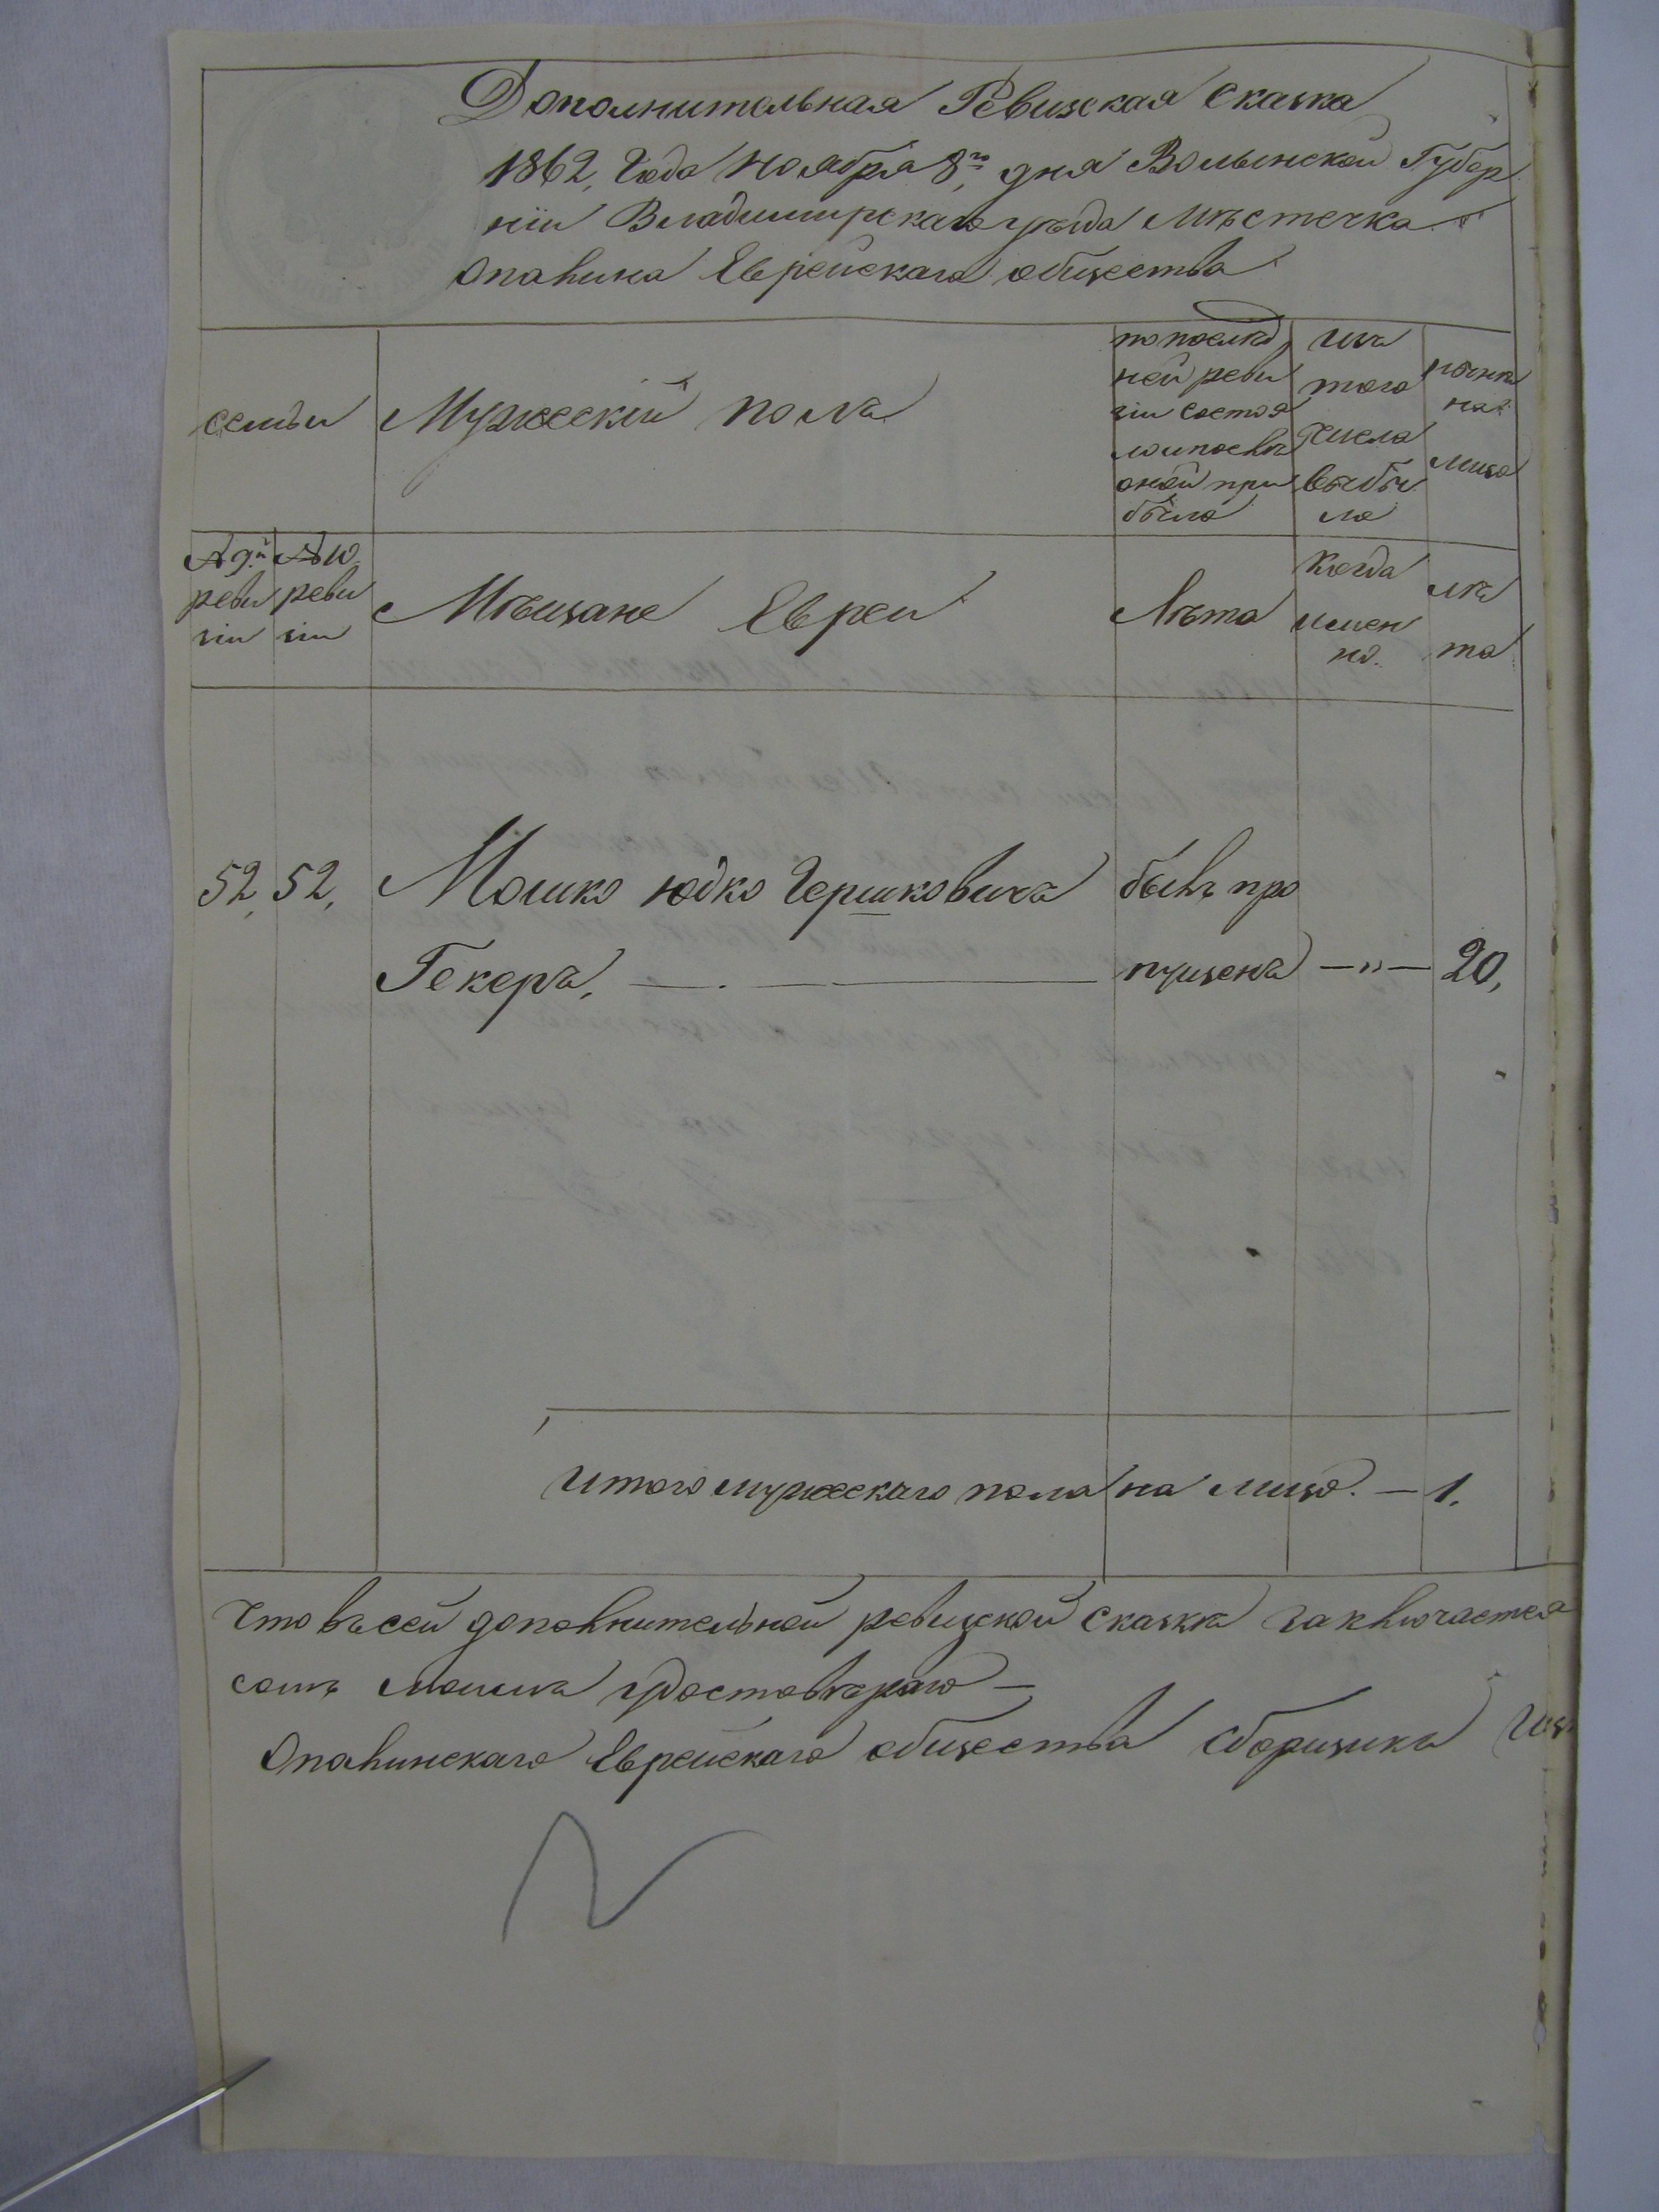 Дополнительная Ревизская Сказка
1862, Года Ноября 8го, дня Волынской Губер
ніи Владимирскаго уѣзда Мѣстечка
Опалина Еврейскаго общества
семьи
Мужескій полъ
по послѣд
ней реви
зіи состоя
ло и послѣ
оной при
было
изъ
того
числа
выбы
ло
нынѣ
на
лицо
№ 9й
реви
зіи
№ 10
реви
зіи
Мѣщане Евреи
Лѣта
Когда
имен
но.
лѣ
та
52, 52, Мошко Юдко Гершковичъ былъ про
Гекеръ, — . — пущенъ — „ — 20,
Итого мужескаго пола на лицо. — 1.
Что въ сей дополнительной ревизской сказкѣ заключается
удостовѣряю —
Опалинскаго Еврейскаго общества сборщикъ